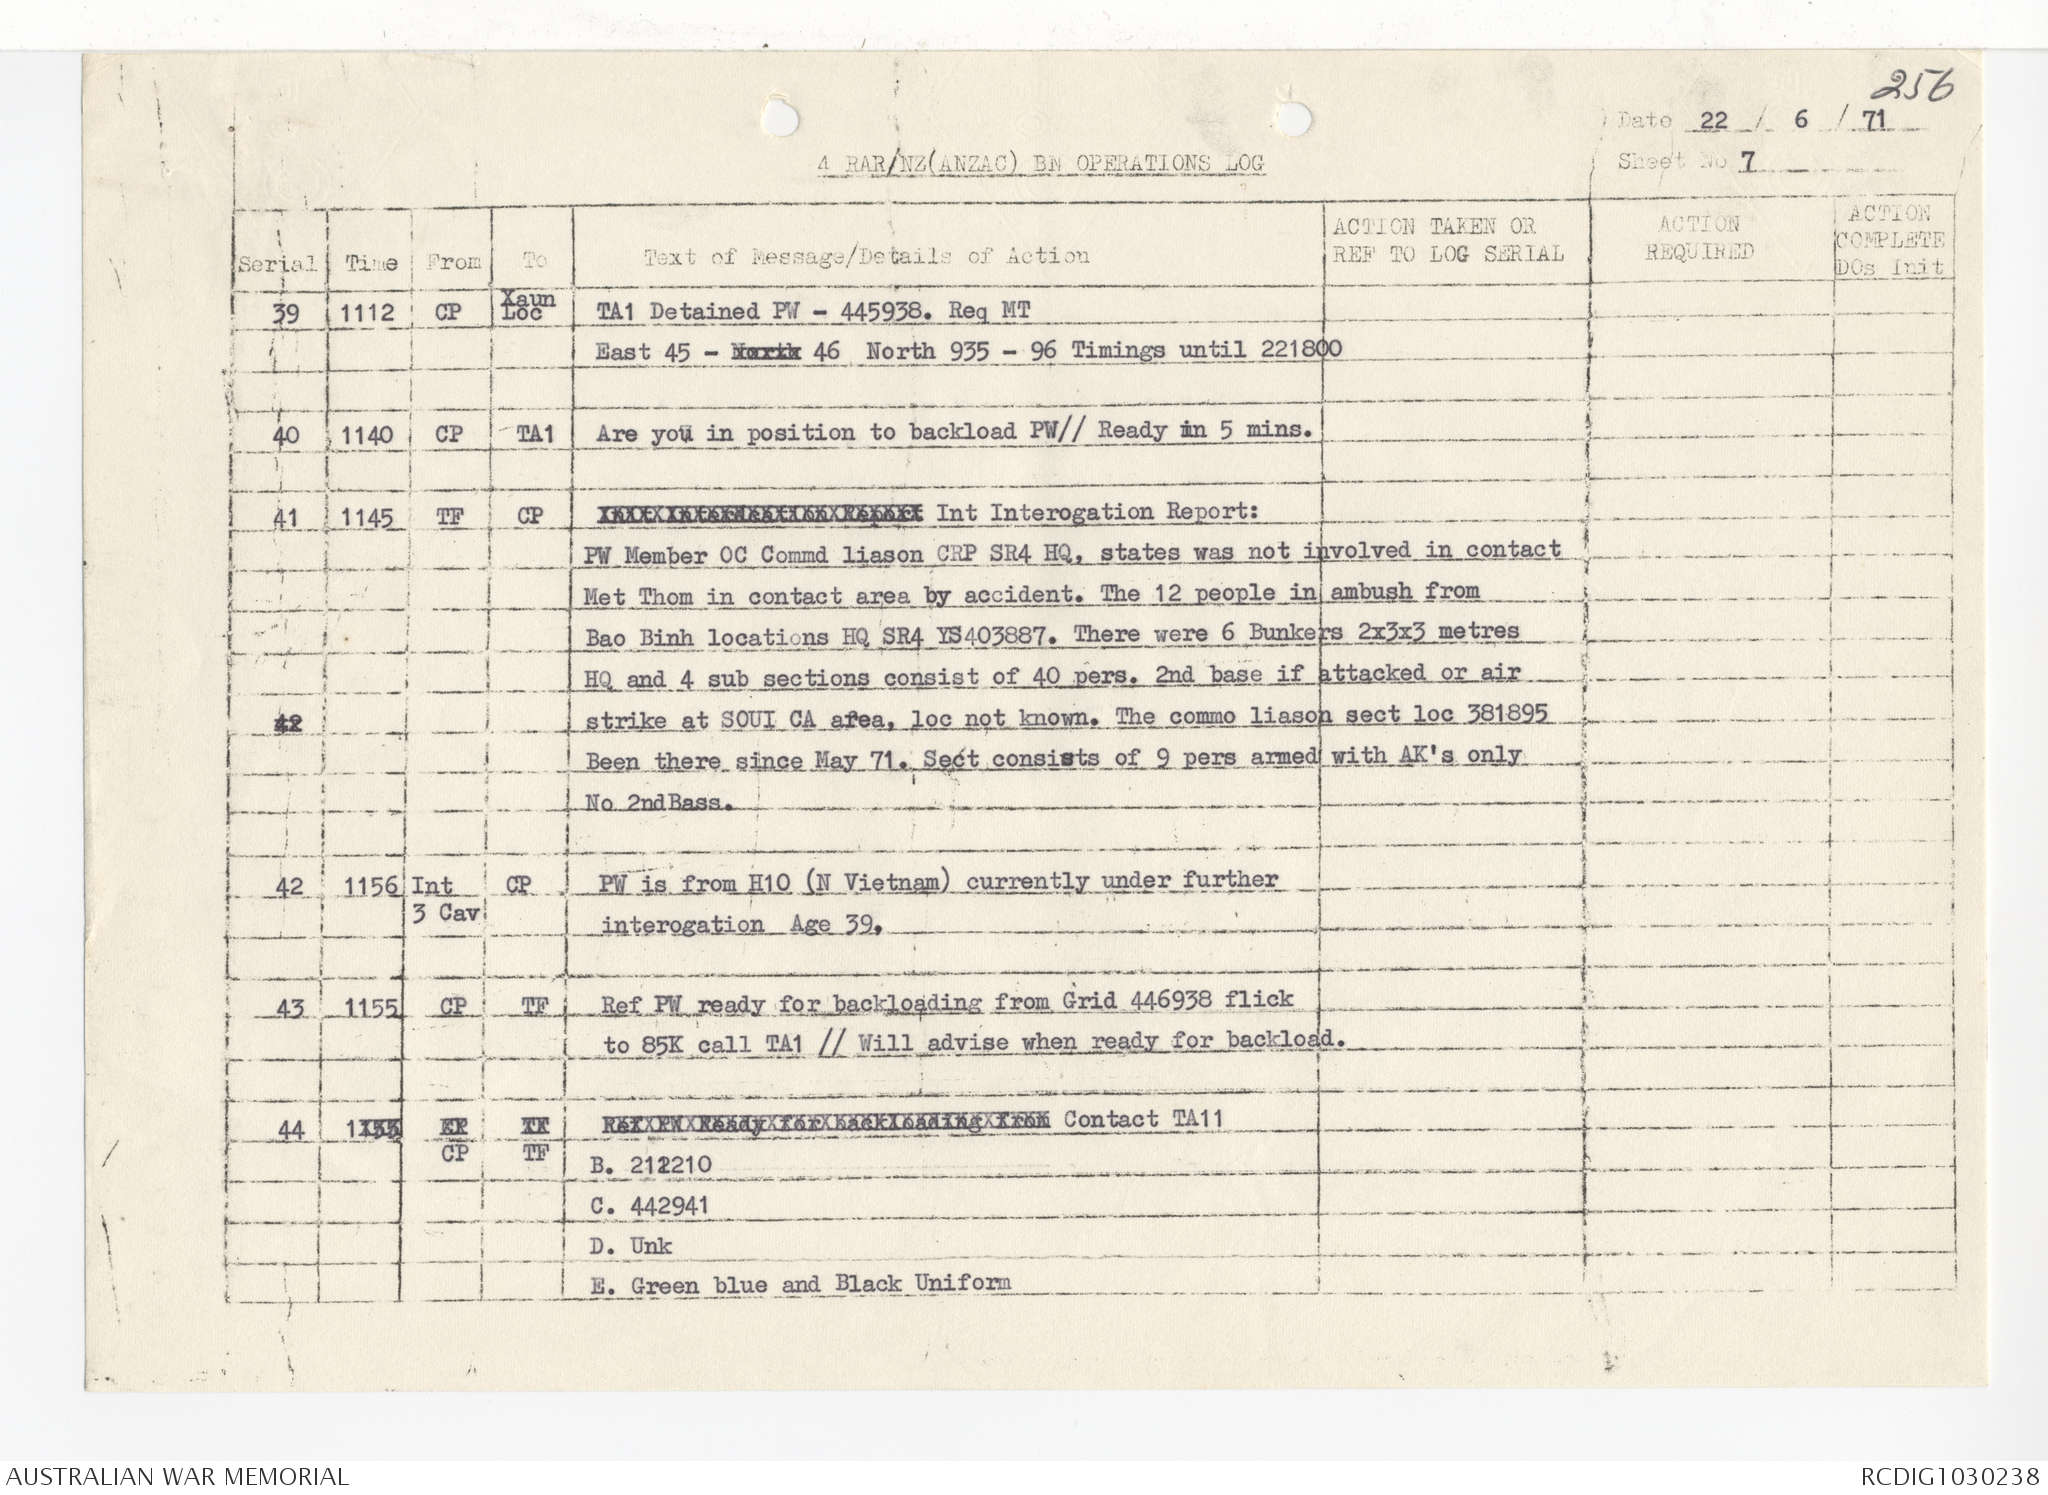 256
Date 22 / 6 / 71
4 RAR/NZ(ANZAC) BN OPERATIONS LOG
Sheet No 7
Serial Time From To Text of Message/Details of Action ACTION TAKEN OR REF TO LOG SERIAL ACTION REQUIRED ACTION COMPLETE DOs Init
39 1112 CP Xaun Loc TA1 Detained PW - 445938. Req MT
East 45 - North 46 North 935 - 96 Timings until 221800
40 1140 CP TA1 Are you in position to backload PW// Ready in 5 mins.
41 1145 TF CP Int Interogation Report:
PW Member OC Commd liason CRP SR4 HQ, states was not involved in contact
Met Thom in contact area by accident. The 12 people in ambush from
Bao Binh locations HQ SR4 YS403887. There were 6 Bunkers 2x3x3 metres
HQ and 4 sub sections consist of 40 pers. 2nd base if attacked or air
42 strike at SOUI CA area, loc not known. The commo liason sect loc 381895
Been there since May 71. Sect consists of 9 pers armed with AK's only
No 2ndBass.
42 1156 Int CP PW is from H10 (N Vietnam) currently under further
3 Cav interogation Age 39.
43 1155 CP TF Ref PW ready for backloading from Grid 446938 flick
to 85K call TA1 // Will advise when ready for backload.
44 Ref PW Ready for backloading from Contact TA11
CP TF B. 212210
C. 442941
D. Unk
E. Green blue and Black Uniform
AUSTRALIAN WAR MEMORIAL RCDIG1030238